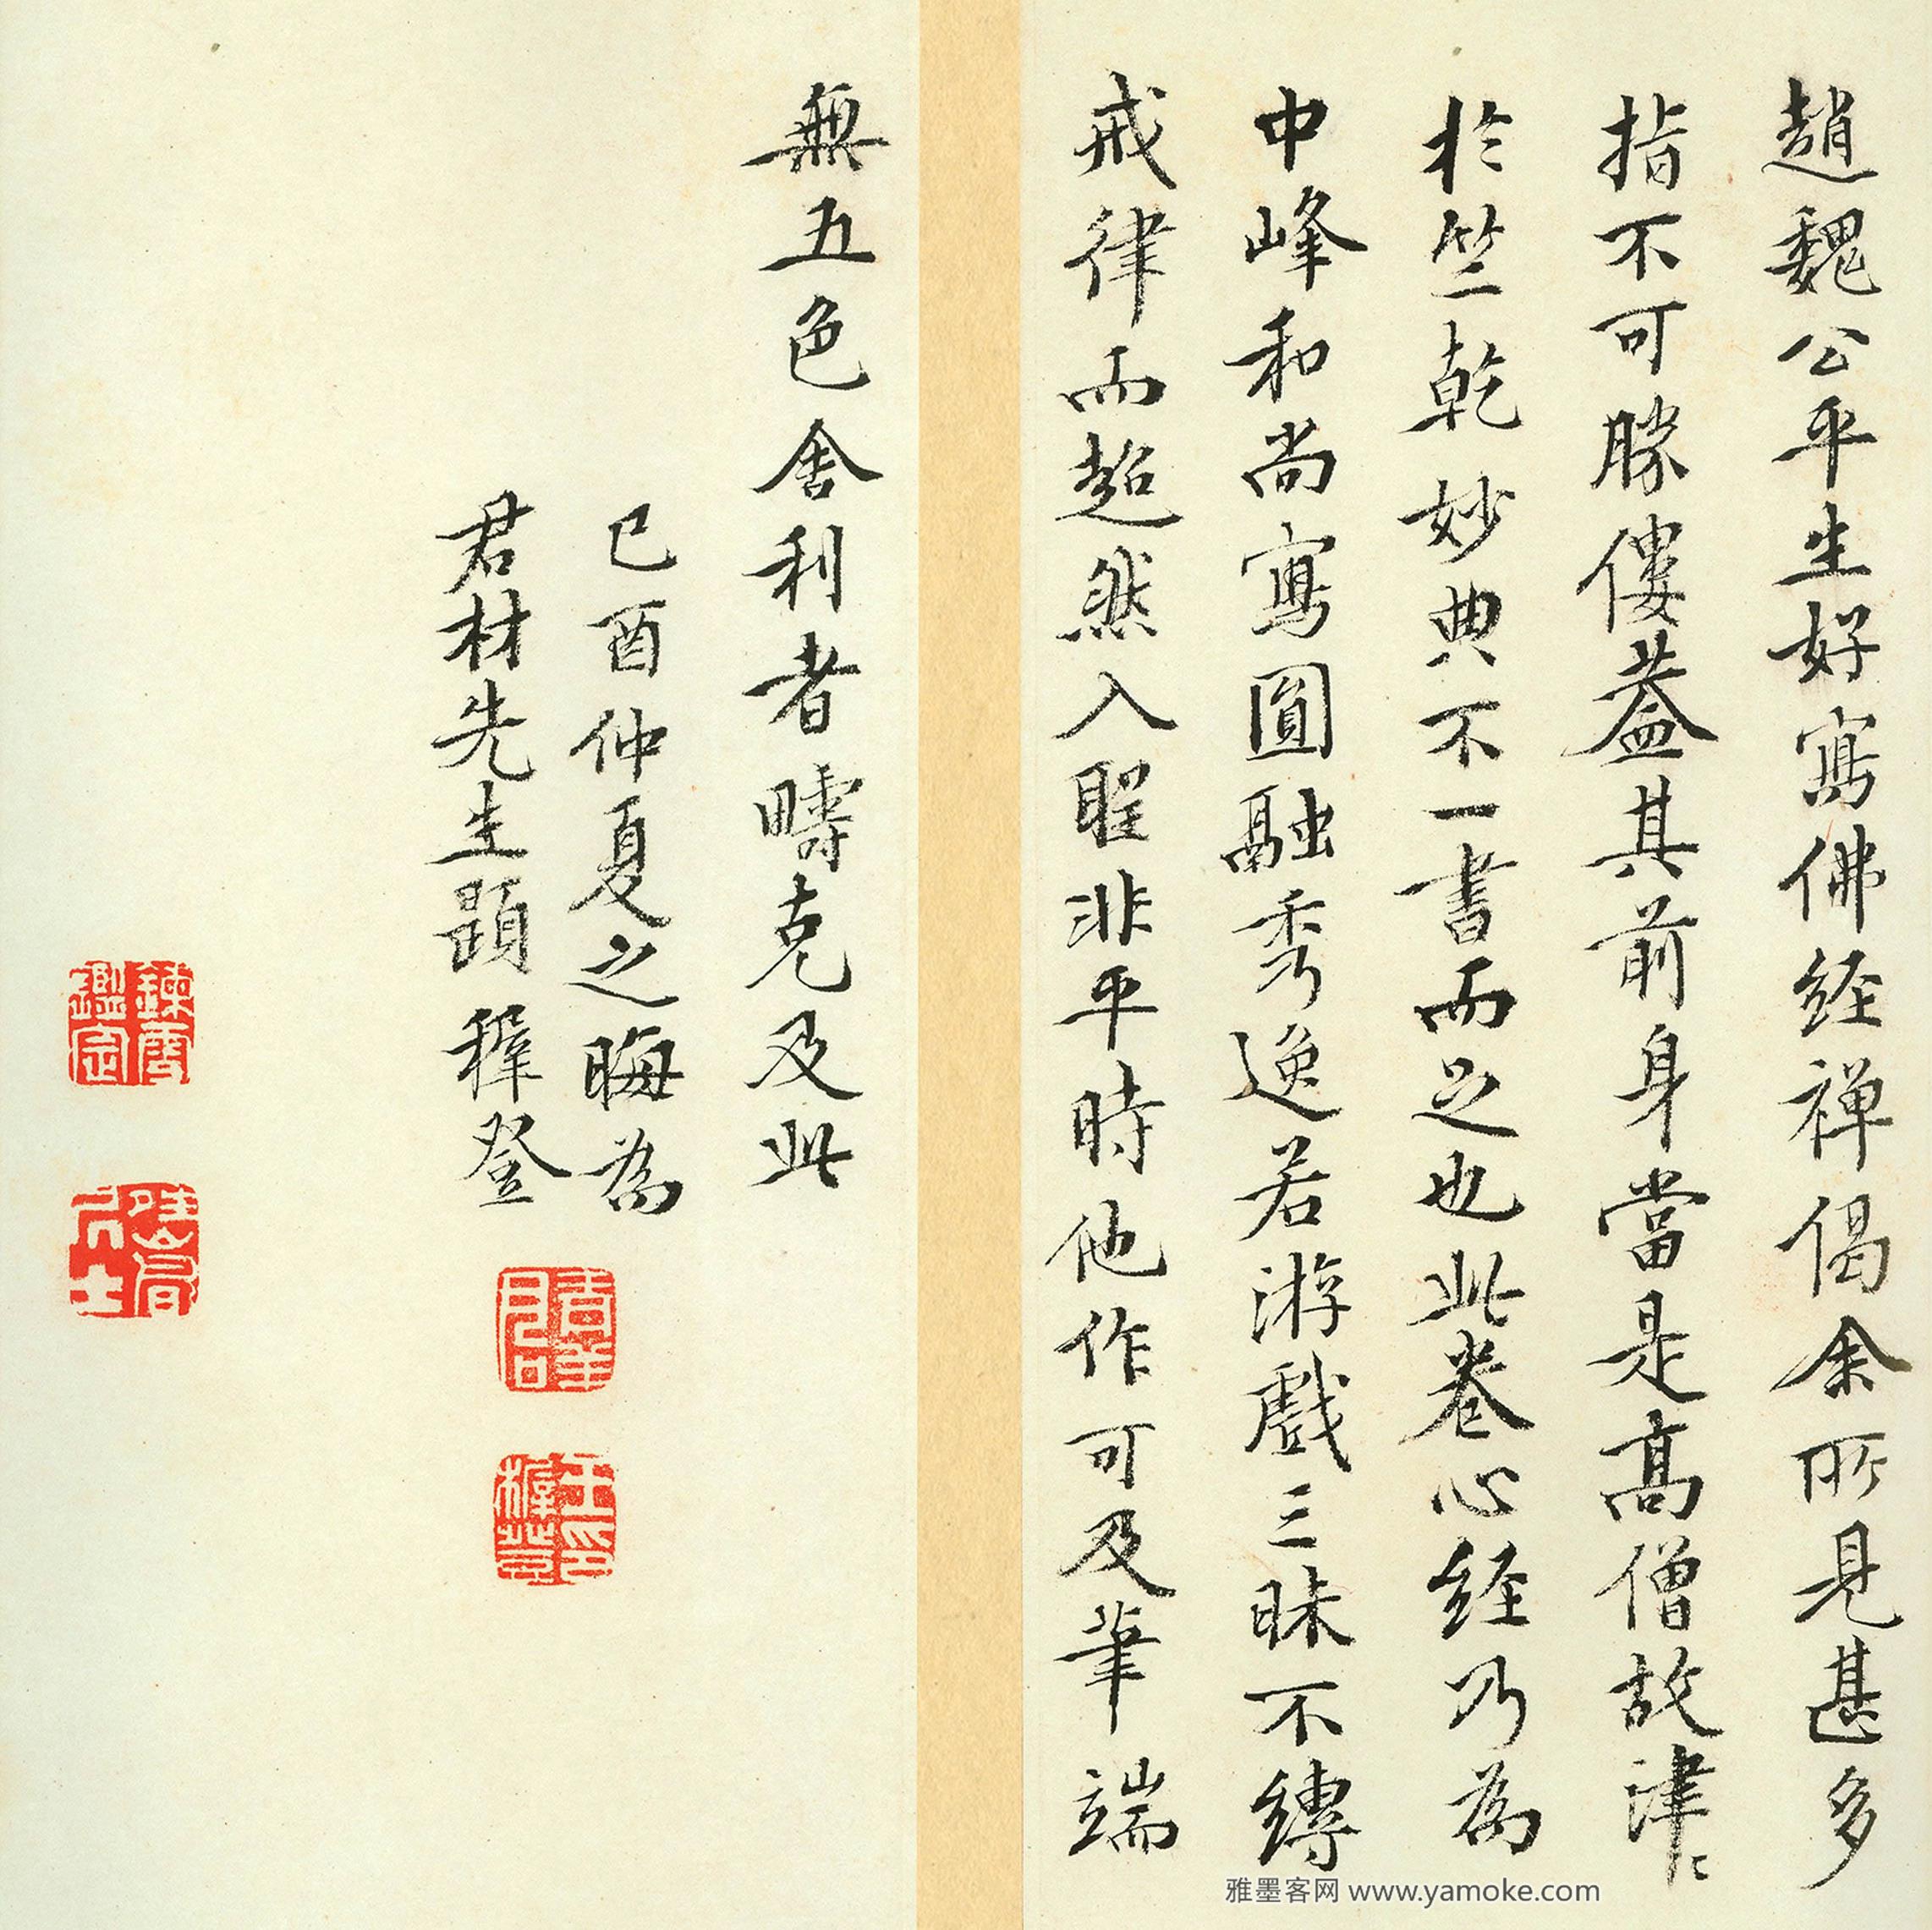 趙魏公平生好寫佛经禅偈余所見甚多
指不可勝僂蓋其前身當是高僧故津〻
於竺乾妙典不一書而足也此卷心经乃為
中峰和尚寫圓融秀逸若游戲三昧不縛
戒律而超然入聖非平時他作可及筆端
無五色舍利者疇克及此
己酉仲夏之晦為
君材先生題 穉登
王穉登印
雅墨客网 www.yamoke.com